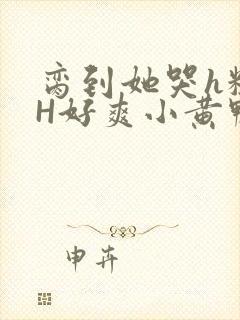 脔到她哭h
H好爽小黄
申卉